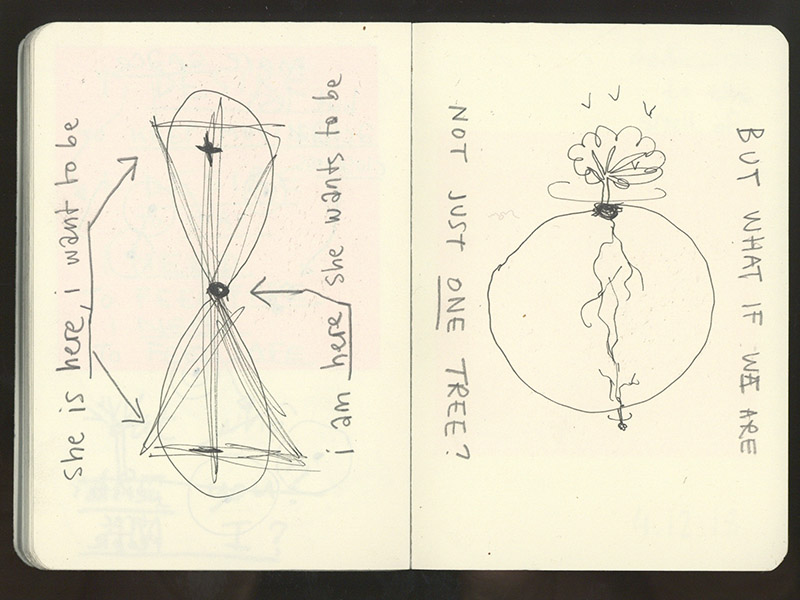 she is here, i want to be
i am here she wants to be
BUT WHAT IF WE ARE
NOT JUST ONE TREE?